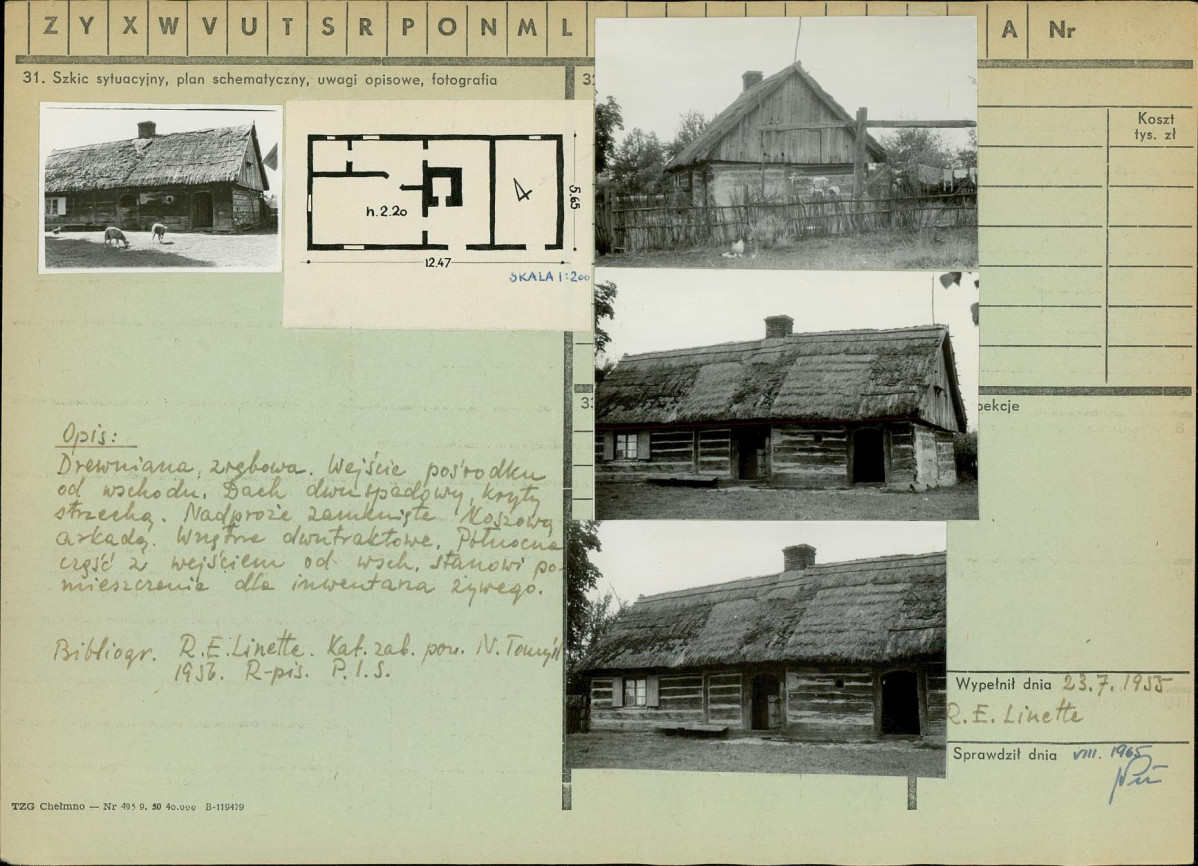 Z Y X W V U T S R P O N M L A Nr
31. Szkic sytuacyjny, plan schematyczny, uwagi opisowe, fotografia
Koszt
tys. zł
h. 2.20
5.65
12.47
SKALA 1:200
Opis:
Drewniana, zrębowa. Wejście pośrodku
od wschodu. Dach dwuspadowy, kryty
strzechą. Nadproże zamknięte koszową
arkadą. Wnętrze dwutraktowe. Północna
część z wejściem od wsch. stanowi po-
mieszczenie dla inwentarza żywego.
Bibliogr. R.E. Linette. Kat. zab. pow. N. Tomyśl
1956. R-pis. P.I.S.
pekcje
Wypełnił dnia 23.7.1955
R. E. Linette
Sprawdził dnia VIII. 1965
TZG Chełmno — Nr 495 9. 50 40.000 B-119479